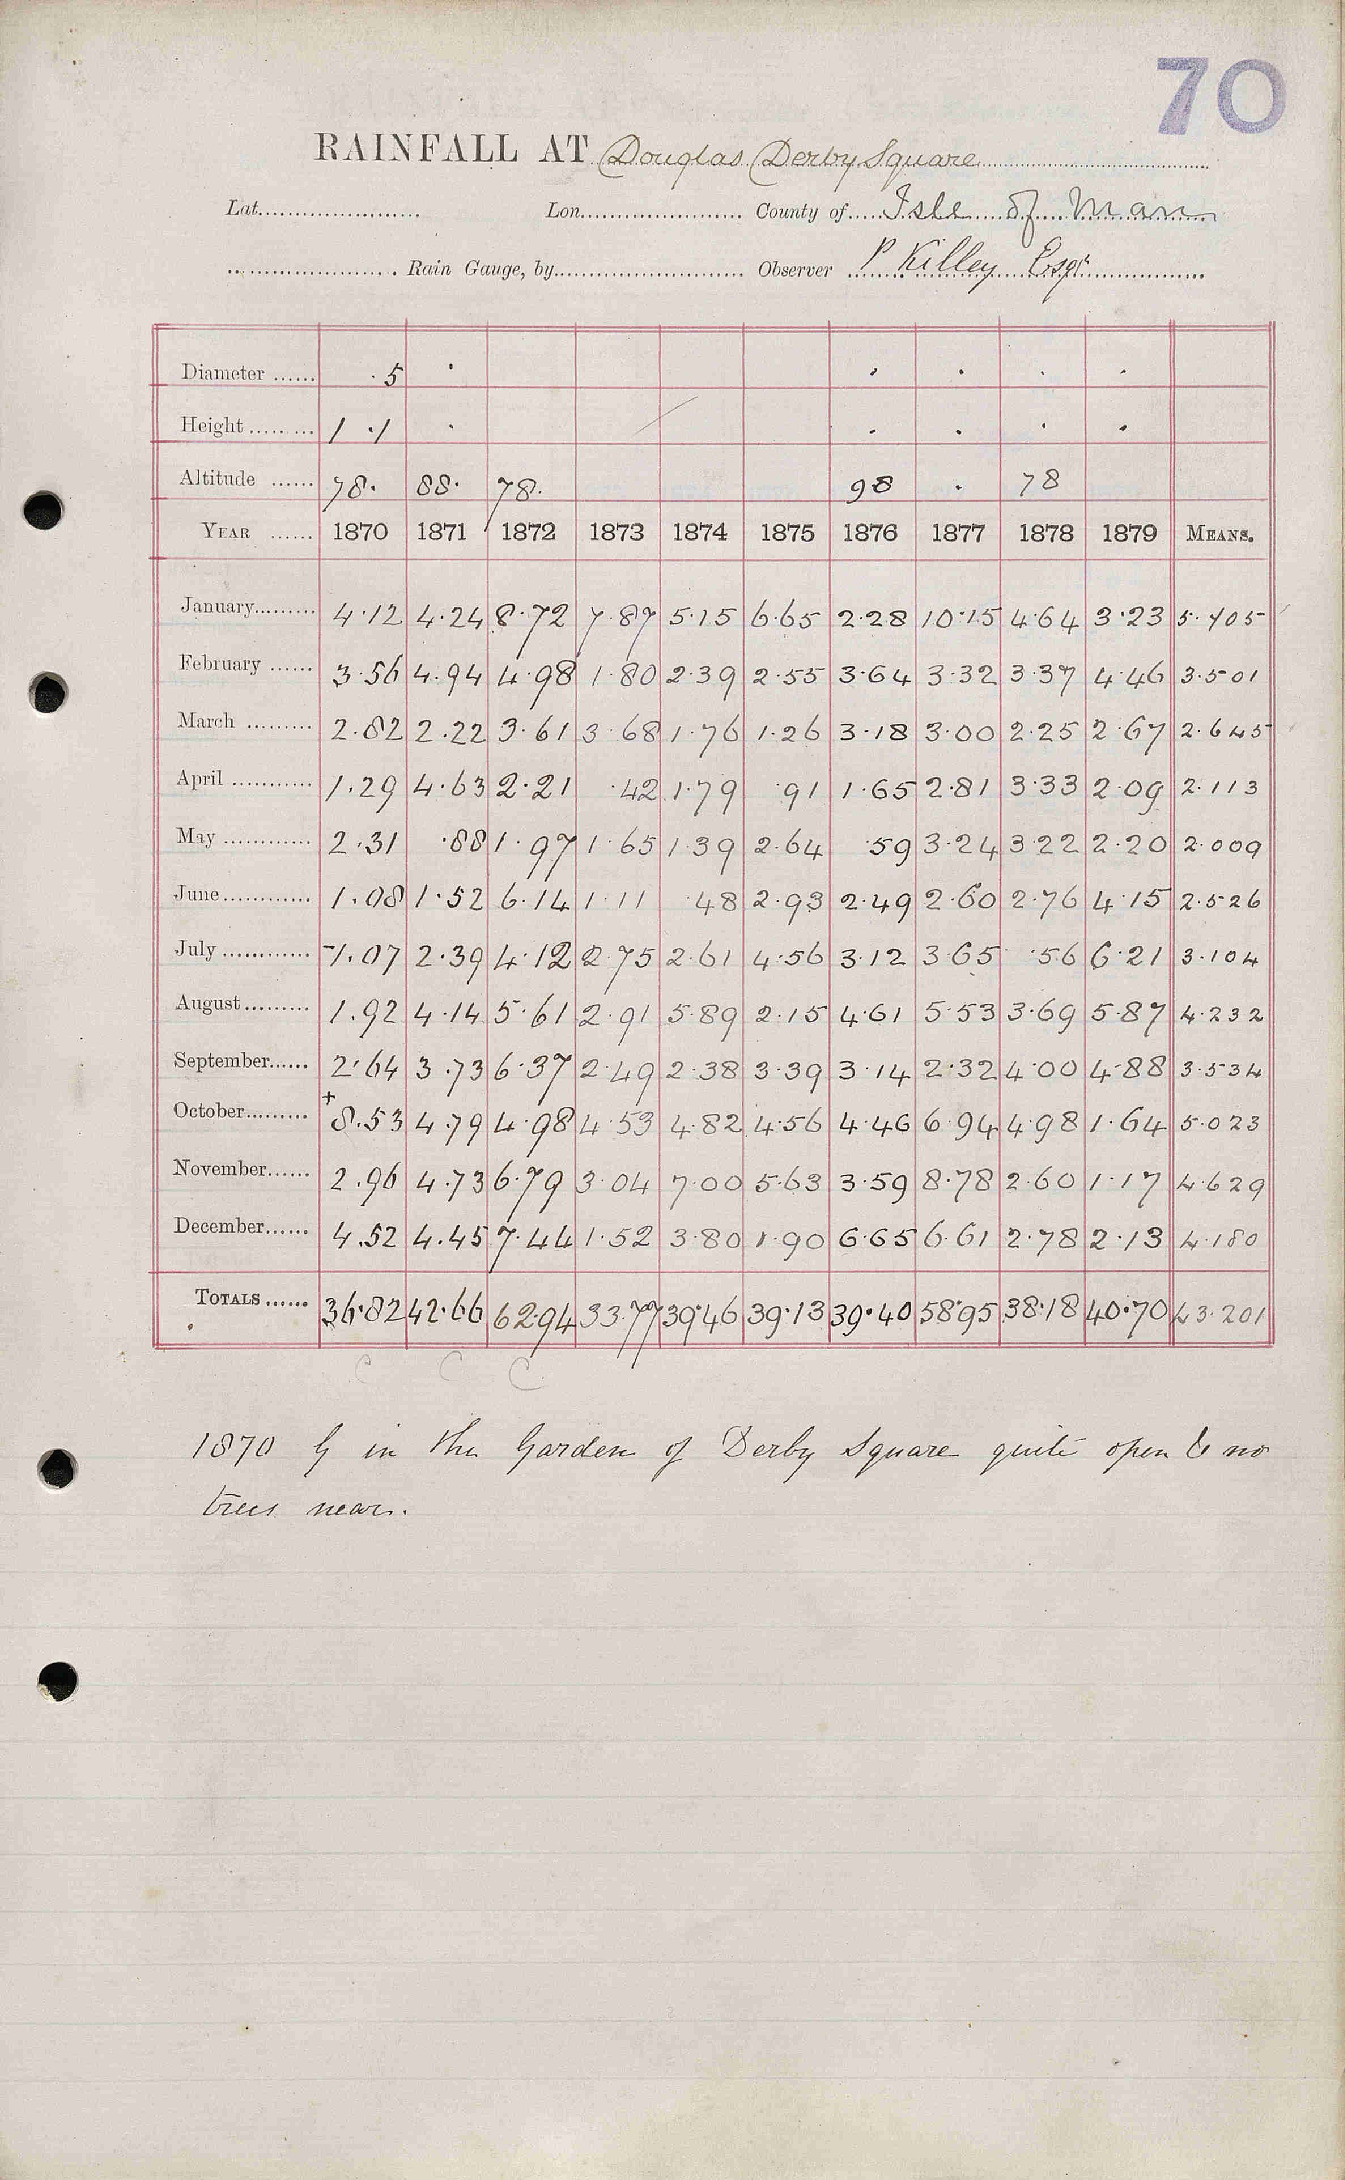 70
RAINFALL AT Douglas Derby Square
Lat. Lon. County of Isle of Man
Rain Gauge, by Observer P Killey Esqr
Diameter ...... 5
Height ......... 1 .1
Altitude ...... 78. 88. 78. 98 . 78
YEAR ...... 1870 1871 1872 1873 1874 1875 1876 1877 1878 1879 MEANS.
January......... 4.12 4.24 8.72 7.87 5.15 6.65 2.28 10.15 4.64 3.23 5.705
February ...... 3.56 4.94 4.98 1.80 2.39 2.55 3.64 3.32 3.37 4.46 3.501
March ......... 2.82 2.22 3.61 3.68 1.76 1.26 3.18 3.00 2.25 2.67 2.645
April ............ 1.29 4.63 2.21 .42 1.79 .91 1.65 2.81 3.33 2.09 2.113
May ............ 2.31 .88 1.97 1.65 1.39 2.64 .59 3.24 3.22 2.20 2.009
June............ 1.08 1.52 6.14 1.11 .48 2.93 2.49 2.60 2.76 4.15 2.526
July ............ -1.07 2.39 4.12 2.75 2.61 4.56 3.12 3.65 .56 6.21 3.104
August......... 1.92 4.14 5.61 2.91 5.89 2.15 4.61 5.53 3.69 5.87 4.232
September...... 2.64 3.73 6.37 2.49 2.38 3.39 3.14 2.32 4.00 4.88 3.534
October......... +8.53 4.79 4.98 4.53 4.82 4.56 4.46 6.94 4.98 1.64 5.023
November...... 2.96 4.73 6.79 3.04 7.00 5.63 3.59 8.78 2.60 1.17 4.629
December...... 4.52 4.45 7.44 1.52 3.80 1.90 6.65 6.61 2.78 2.13 4.180
TOTALS ...... 36.82 42.66 62.94 33.77 39.46 39.13 39.40 58.95 38.18 40.70 43.201
C C C
1870 G in the Garden of Derby Square quite open & no
trees near.